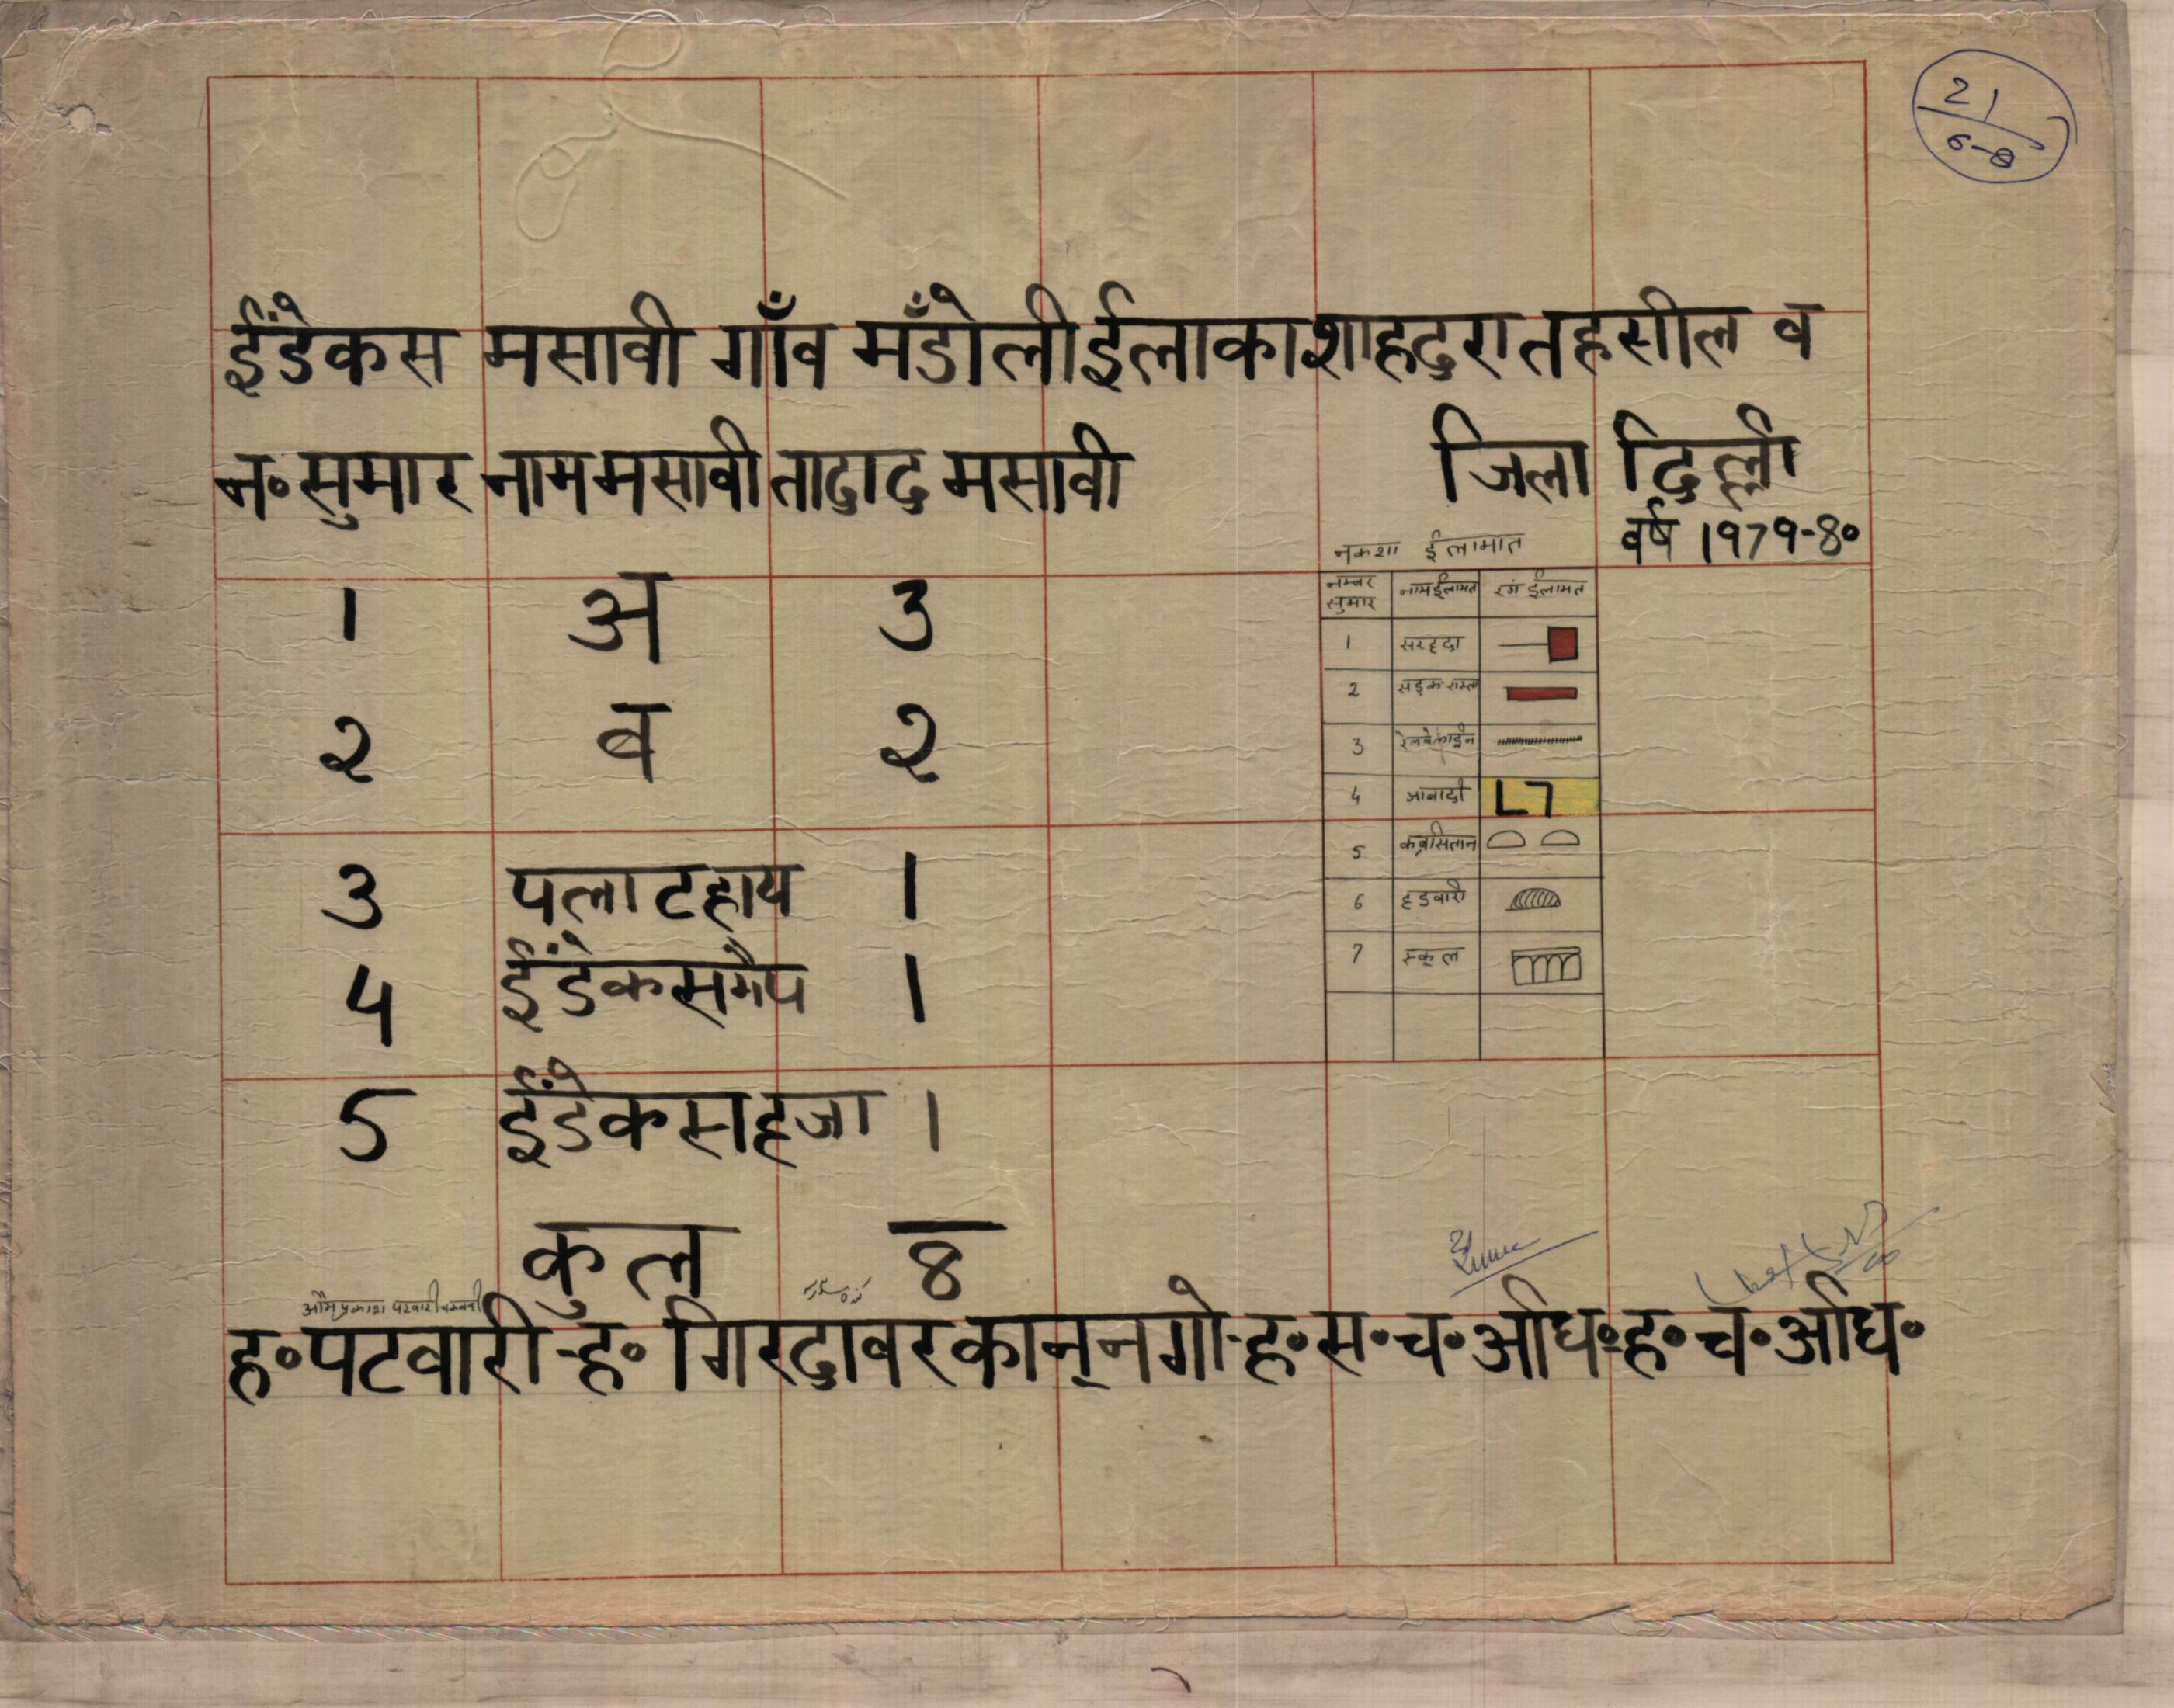 21
6-8
ईंडेकस मसावी गाँव मँडोली ईलाका शाहदरा तहसील व
जिला दिल्ली
न॰ सुमार नाम मसावी तादाद मसावी
वर्ष 1979-80
1 अ 3
२ ब २
3 पलाटहाय 1
4 ईंडेकसमैप 1
5 ईंडेकसहजा 1
कुल 8
नकशा ईलामात
नम्बर सुमार नाम ईलामत रंग ईलामत
1 सरहदा
2 सड़क रास्ता
3 रेलवे लाईन
4 आबादी
5 कब्रसितान
6 हडवारी
7 स्कूल
ओम प्रकाश पटवारी
ह॰ पटवारी - ह॰ गिरदावर कानूनगो - ह॰ स॰ च॰ अधि॰ ह॰ च॰ अधि॰